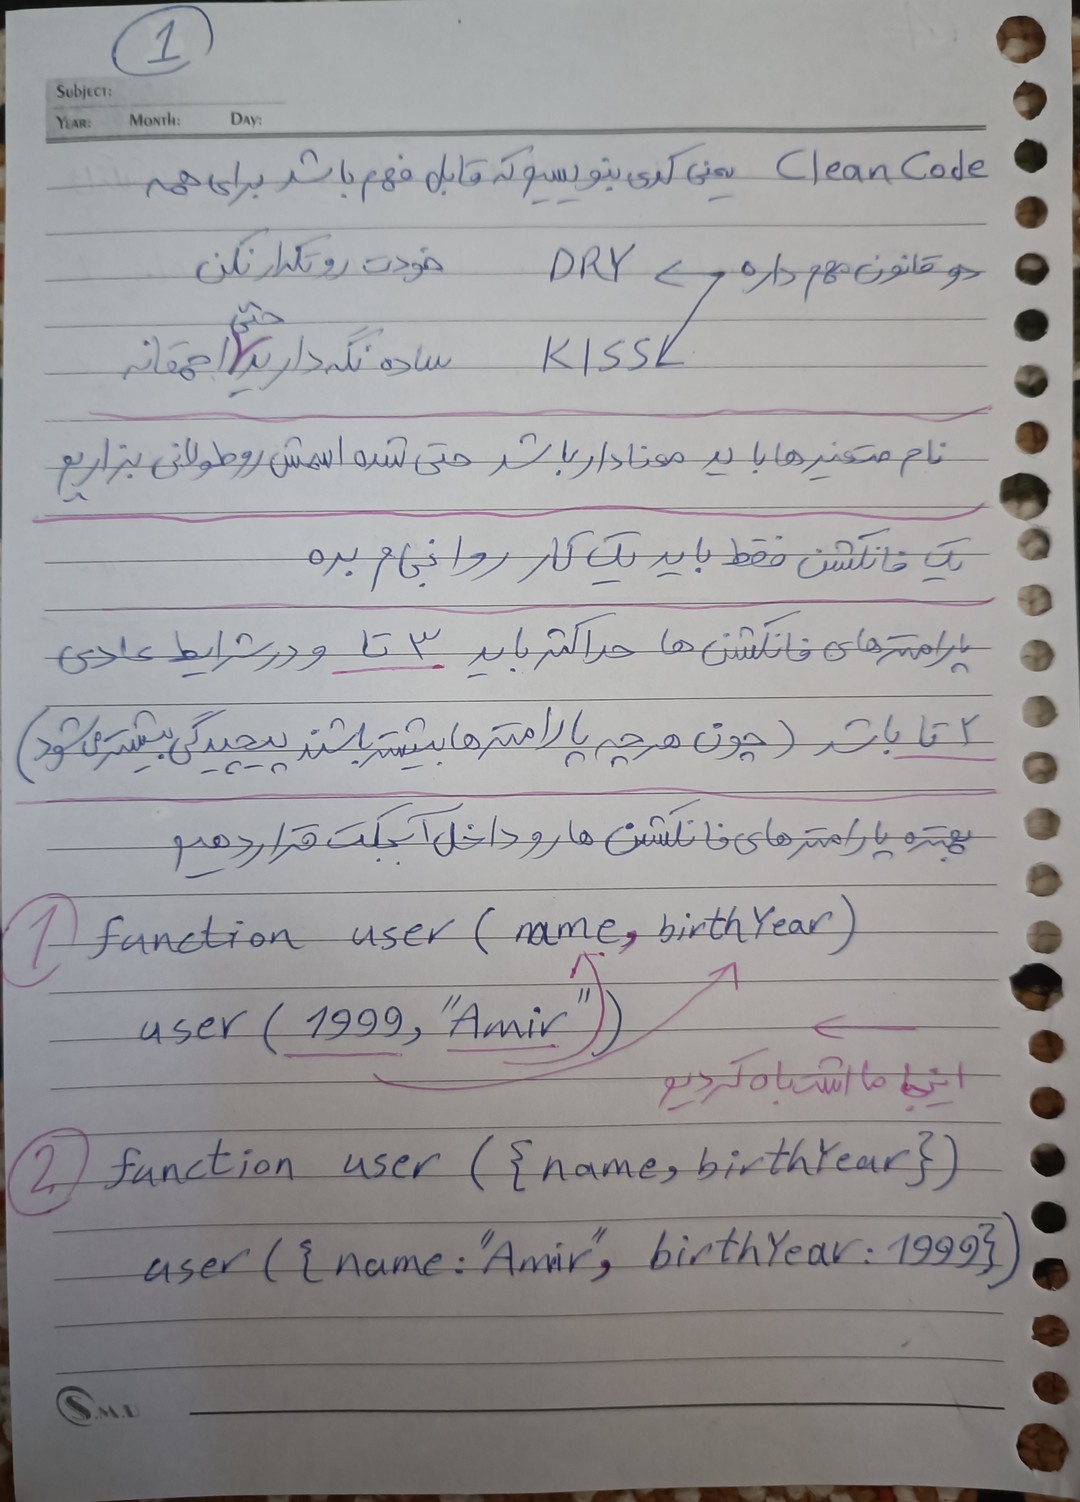 1
Subject:
Year: Month: Day:
Clean Code یعنی کدی بنویسیم که قابل فهم باشد برای همه
دو قانون مهم داره → DRY خودت رو تکرار نکن
KISS ساده نگه دارید حتی احمقانه
نام متغیرها باید معنادار باشد حتی شده اسمش رو طولانی بزاریم
یک فانکشن فقط باید یک کار رو انجام بده
پارامترهای فانکشن ها حداکثر باید ۳ تا و در شرایط عادی
۲ تا باشد (چون هرچه پارامترها بیشتر باشند پیچیدگی بیشتر می‌شود)
بهتره پارامترهای فانکشن ها رو داخل آبجکت قرار دهیم
1 function user ( name, birthYear)
user ( 1999, "Amir" )
←
اینجا ما اشتباه کردیم
2 function user ({name, birthYear})
user ({name: "Amir", birthYear: 1999})
S.M.D